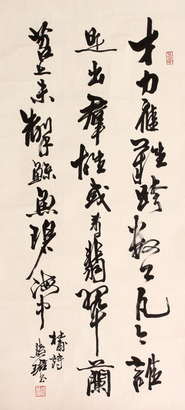 才力應難跨數公凡今誰
是出羣雄或看翡翠蘭
苕上未掣鯨魚碧海中
杜詩